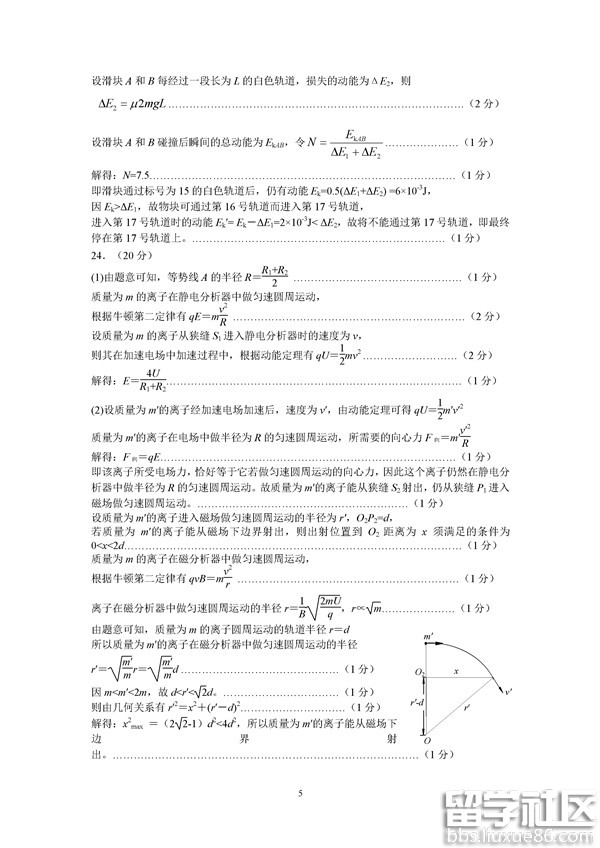 设滑块 A 和 B 每经过一段长为 L 的白色轨道，损失的动能为ΔE₂，则
ΔE₂ = μ2mgL……………………………………………………………………（2 分）
设滑块 A 和 B 碰撞后瞬间的总动能为 EkAB，令 N = EkAB/(ΔE₁ + ΔE₂) …………………（1 分）
解得：N=7.5……………………………………………………………………（1 分）
即滑块通过标号为 15 的白色轨道后，仍有动能 Ek=0.5(ΔE₁+ΔE₂) =6×10⁻³J，
因 Ek>ΔE₁，故物块可通过第 16 号轨道而进入第 17 号轨道，
进入第 17 号轨道时的动能 Ek′= Ek－ΔE₁=2×10⁻³J< ΔE₂，故将不能通过第 17 号轨道，即最终
停在第 17 号轨道上。………………………………………………………………（1 分）
24．（20 分）
(1)由题意可知，等势线 A 的半径 R＝(R₁+R₂)/2 …………………………………………（1 分）
质量为 m 的离子在静电分析器中做匀速圆周运动，
根据牛顿第二定律有 qE＝mv²/R …………………………………………………………（2 分）
设质量为 m 的离子从狭缝 S₁ 进入静电分析器时的速度为 v，
则其在加速电场中加速过程中，根据动能定理有 qU＝1/2mv²………………………（2 分）
解得：E＝4U/(R₁+R₂)…………………………………………………………………………（1 分）
(2)设质量为 m′的离子经加速电场加速后，速度为 v′，由动能定理可得 qU＝1/2m′v′²
质量为 m′的离子在电场中做半径为 R 的匀速圆周运动，所需要的向心力 F向＝m′v′²/R
解得：F向＝qE………………………………………………………………………（1 分）
即该离子所受电场力，恰好等于它若做匀速圆周运动的向心力，因此这个离子仍然在静电分
析器中做半径为 R 的匀速圆周运动。故质量为 m′的离子能从狭缝 S₂ 射出，仍从狭缝 P₁ 进入
磁场做匀速圆周运动。……………………………………………………（1 分）
设质量为 m′的离子进入磁场做匀速圆周运动的半径为 r′，O₂P₂=d，
若质量为 m′的离子能从磁场下边界射出，则出射位置到 O₂ 距离为 x 须满足的条件为
0<x<2d……………………………………………………………………………………（1 分）
质量为 m 的离子在磁分析器中做匀速圆周运动，
根据牛顿第二定律有 qvB＝mv²/r ………………………………………………………（1 分）
离子在磁分析器中做匀速圆周运动的半径 r＝1/B√(2mU/q)，r∝√m…………………（1 分）
由题意可知，质量为 m 的离子圆周运动的轨道半径 r＝d
所以质量为 m′的离子在磁分析器中做匀速圆周运动的半径
r′＝√(m′/m)r＝√(m′/m)d ………………………………………（1 分）
因 m<m′<2m，故 d<r′<√2d。……………………………（1 分）
则由几何关系有 r′²＝x²＋(r′－d)²…………………………（1 分）
解得：x²max ＝（2√2-1）d²<4d²，所以质量为 m′的离子能从磁场下
边 界 射
出。……………………………………………………………………………（1 分）
m′
O₂
x
v′
r′-d
r′
O
5
留学社区
bbs.liuxue86.com